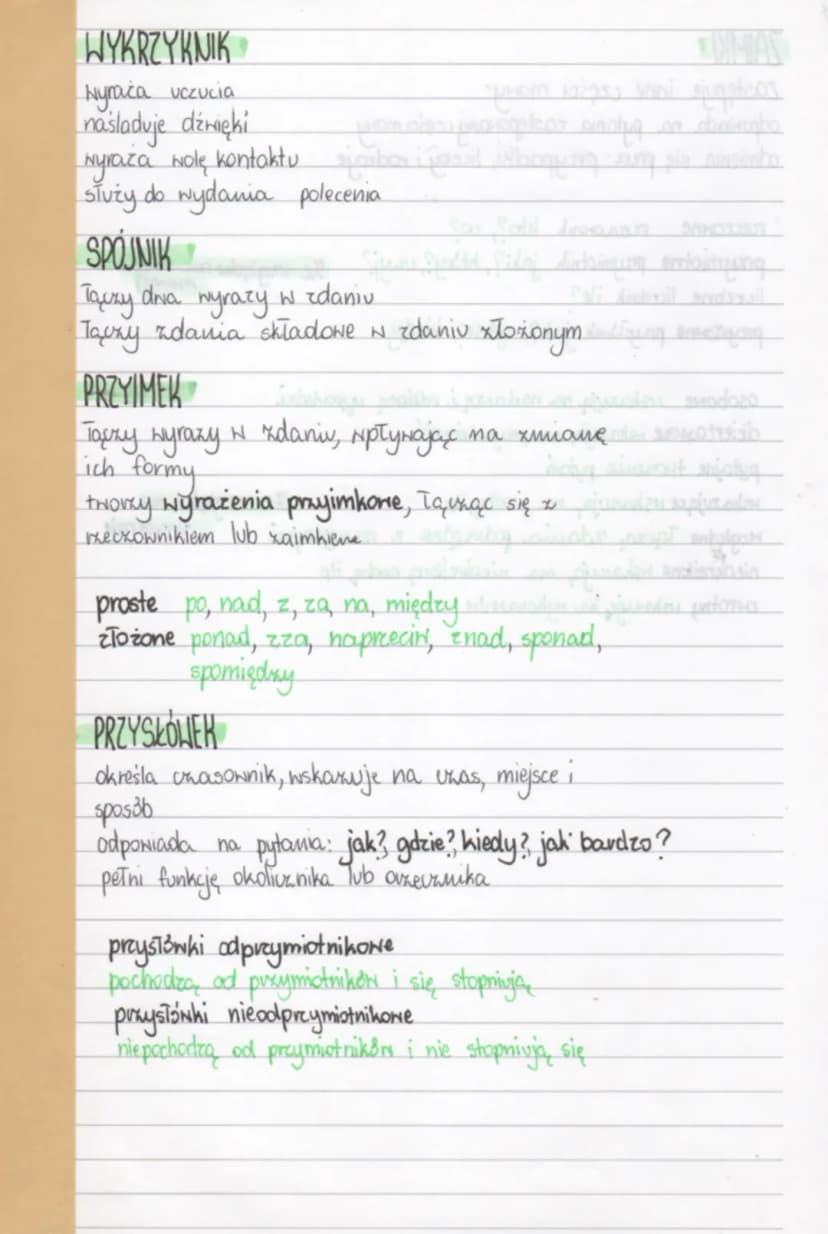 WYKRZYKNIK
wyraża uczucia
naśladuje dźwięki
wyraża wolę kontaktu
służy do wydania polecenia
SPÓJNIK
łączy dwa wyrazy w zdaniu
łączy zdania składowe w zdaniu złożonym
PRZYIMEK
łączy wyrazy w zdaniu, wpływając na zmianę
ich formy
tworzy wyrażenia przyimkowe, łącząc się z
rzeczownikiem lub zaimkiem
proste po, nad, z, za, na, między
złożone ponad, zza, naprzeciw, znad, sponad,
spomiędzy
PRZYSŁÓWEK
określa czasownik, wskazuje na czas, miejsce i
sposób
odpowiada na pytania: jak?, gdzie?, kiedy?, jak bardzo?
pełni funkcję okolicznika lub orzecznika
przysłówki odprzymiotnikowe
pochodzą od przymiotników i się stopniują
przysłówki nieodprzymiotnikowe
niepochodzą od przymiotników i nie stopniują się